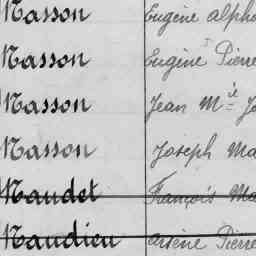 Masson Eugène Alpho
Masson Eugène Pierre
Masson Jean Mie Jo
Masson Joseph Ma
Maudet François Ma
Maudieu Arsène Pierre